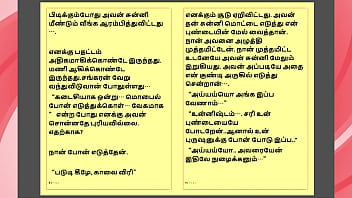 பிடிக்கும்போது அவன் சுன்னி
மீண்டும் வீங்க ஆரம்பித்துவிட்டது
….
எனக்கு பதட்டம்
அதிகமாகிக்கொண்டே இருந்தது.
மணி ஆகிக்கொண்டே
இருந்தது.சங்கரன் வேறு
வந்துவிடுவான் போதுள்ளது…
“கடைசியாக ஒன்று… மொபைல்
போன் எடுத்துக்கொள் … வேகமாக
” என்ற போது எனக்கு அவன்
சொன்னதே புரியவில்லை.
எதற்காக?
நான் போன் எடுத்தேன்.
“படுடி கீழே, காலை விரி”
எனக்கும் சூடு ஏறிவிட்டது. அவன்
தன் சுன்னி மொட்டை எடுத்து என்
புண்டையின் மேல் வைத்தான்.
நான் அவனை அழுத்தி
முத்தமிட்டேன். நான் முத்தமிட்ட
உடனேயே அவன் சுன்னி மேலும்
இறுகியது. அவன் அப்படியே அதை
என் குண்டி அருகில் எடுத்து
சென்றான்…
“அய்யய்யொ அங்க இப்ப
வேணாம்…”
“உன்னிஷ்டம்… சரி உன்
புண்டையையே
போடறேன்..ஆனால் உன்
புருஷனுக்கு போன் போடு இப்ப..”
“அய்யய்யோ.. அவரையேன்
இதிலே நுழைக்கனும்…”